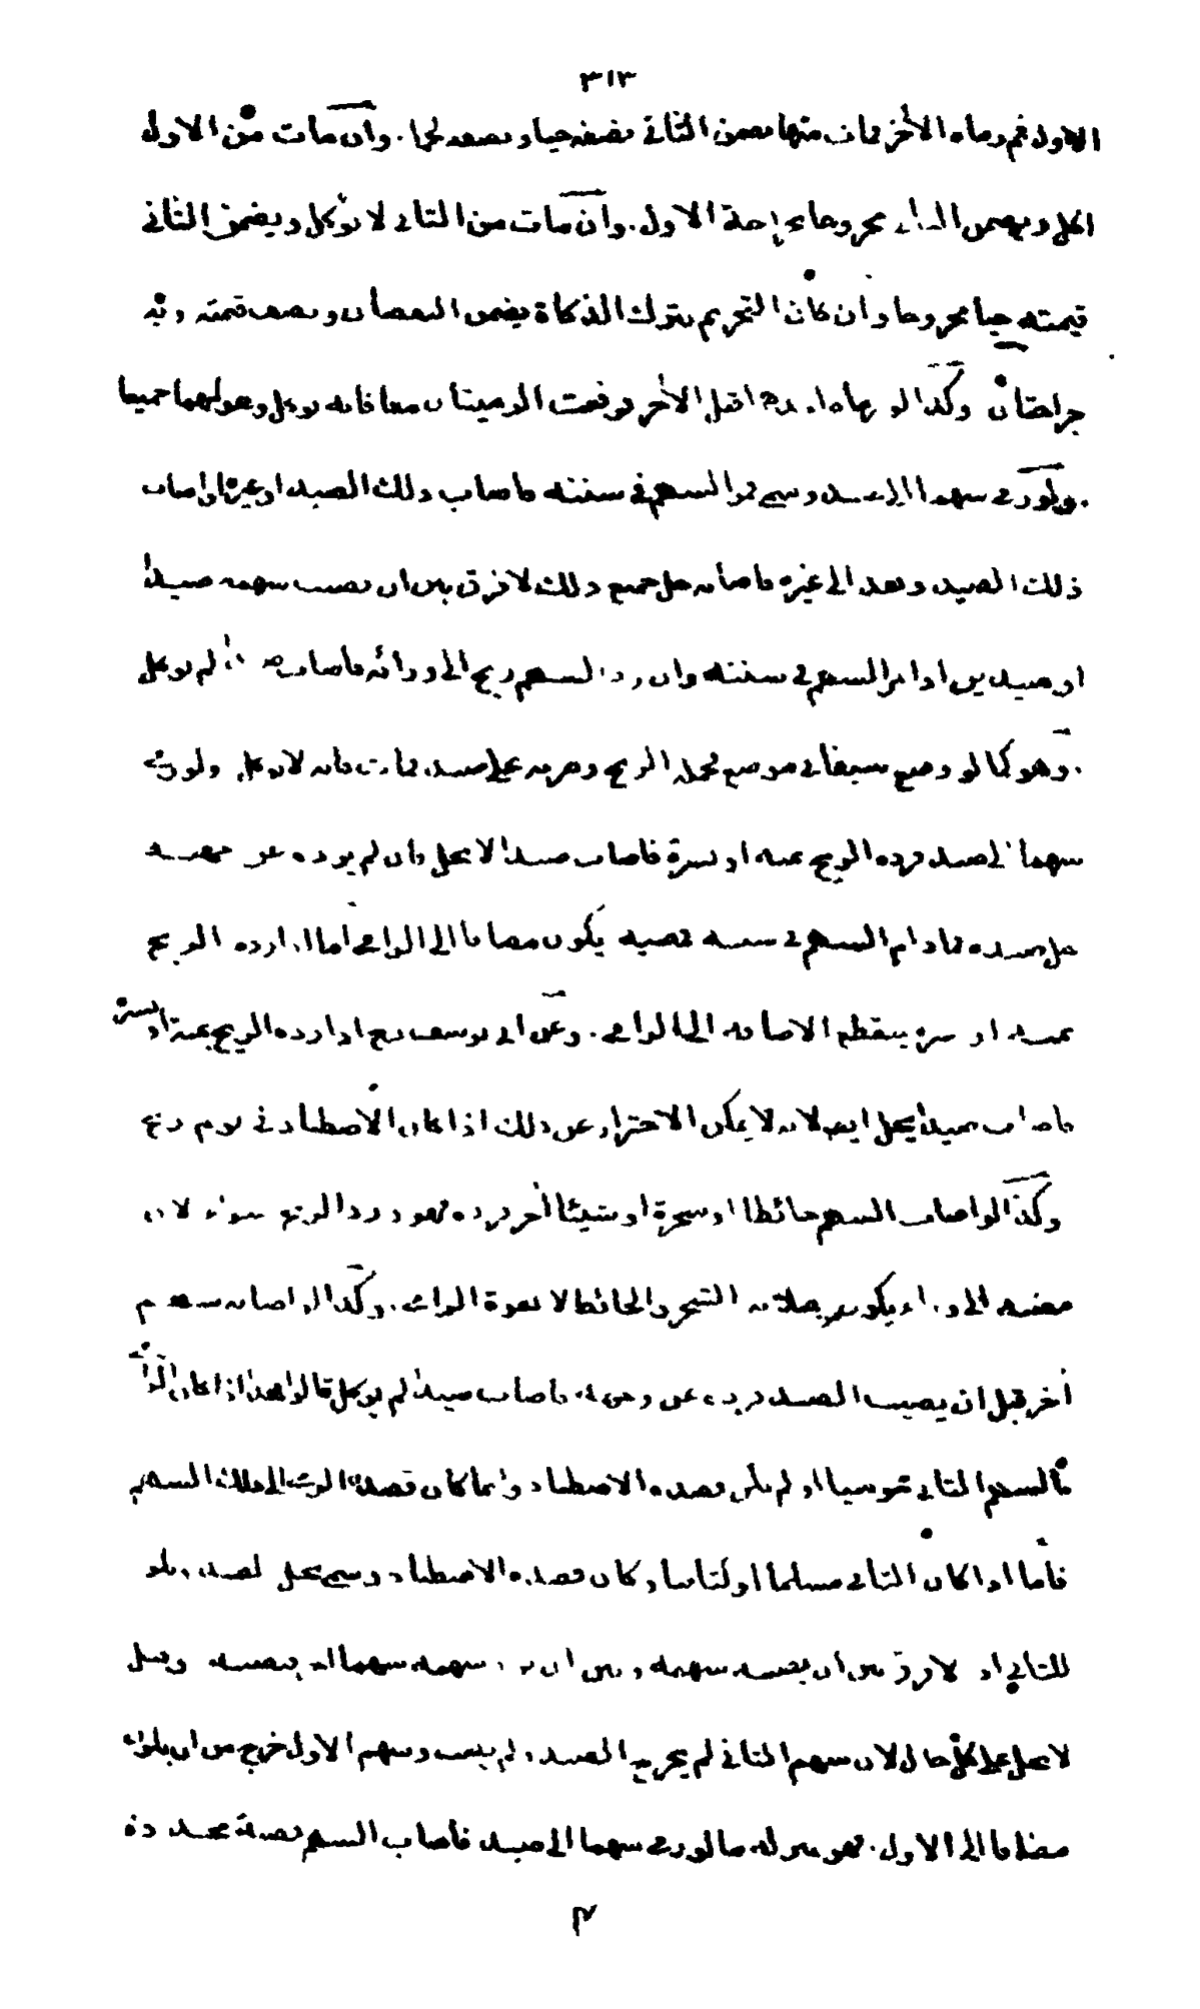 ٣١٣
الاول ثم رماه الآخر فمات منها يضمن الثاني نصفه حيا ونصفه لحما. وان مات من الاول
اكل ويضمن الثاني مجروحا بجراحة الاول. وان مات من الثاني لا يؤكل ويضمن الثاني
قيمته حيا مجروحا وان كان التحريم بترك الذكاة يضمن النقصان ونصف قيمته وبه
جراحتان وكذا لو رماه احدهما قبل الآخر فوقعت الرميتان معا فانه يوكل وهو لهما جميعا
ولو رمى سهما الى صيد وسمى فمر السهم في سننه فاصاب ذلك الصيد او غيره او اصاب
ذلك الصيد ونفد الى غيره فاصابه حل جميع ذلك لا فرق بين ان يصيب سهمه صيدا
او صيدين اذا مر السهم في سننه وان رد السهم ريح الى ورائه فاصاب صيدا لم يوكل
وهو كما لو وضع سيفا في موضع فحمله الريح وضربه على صيد فمات فانه لا يوكل ولو رمى
سهما الى صيد فرده الريح يمنة او يسرة فاصاب صيدا لا يحل وان لم يرده عن جهته
حل صيده فما دام السهم في سننه فمضيه يكون مضافا الى الرامي اما اذا رده الريح
يمنة او يسرة ينقطع الاضافة الى الرامي. وعن ابي يوسف رح اذا رده الريح يمنة او يسرة
فاصاب صيدا يحل ايضا لانه لا يمكن الاحتراز عن ذلك اذا كان الاصطياد في يوم ريح
وكذا لو اصاب السهم حائطا او شجرة او شيئا آخر فرده فهو ورد الريح سواء لان
مضيه الى وراء يكون بصلابة الشجر والحائط لا بقوة الرامي. وكذا لو اصابه سهم
آخر قبل ان يصيب الصيد فرده عن وجهه فاصاب صيدا لم يوكل قالوا هذا اذا كان الرامي
بالسهم الثاني مجوسيا او لم يكن قصده الاصطياد وانما كان قصده الرمي الى ذلك السهم
فاما اذا كان الثاني مسلما او كتابيا وكان قصده الاصطياد وسمى يحل الصيد
للثاني اذ لا فرق بين ان يصيبه سهمه وبين ان يرد سهمه سهما آخر فيصيبه وقيل
لا يحل على كل حال لان سهم الثاني لم يجرح الصيد ولم يصب وسهم الاول خرج من ان يكون
مضافا الى الاول. فهو بمنزلة ما لو رمى سهما الى صيد فاصاب السهم قصبة محددة